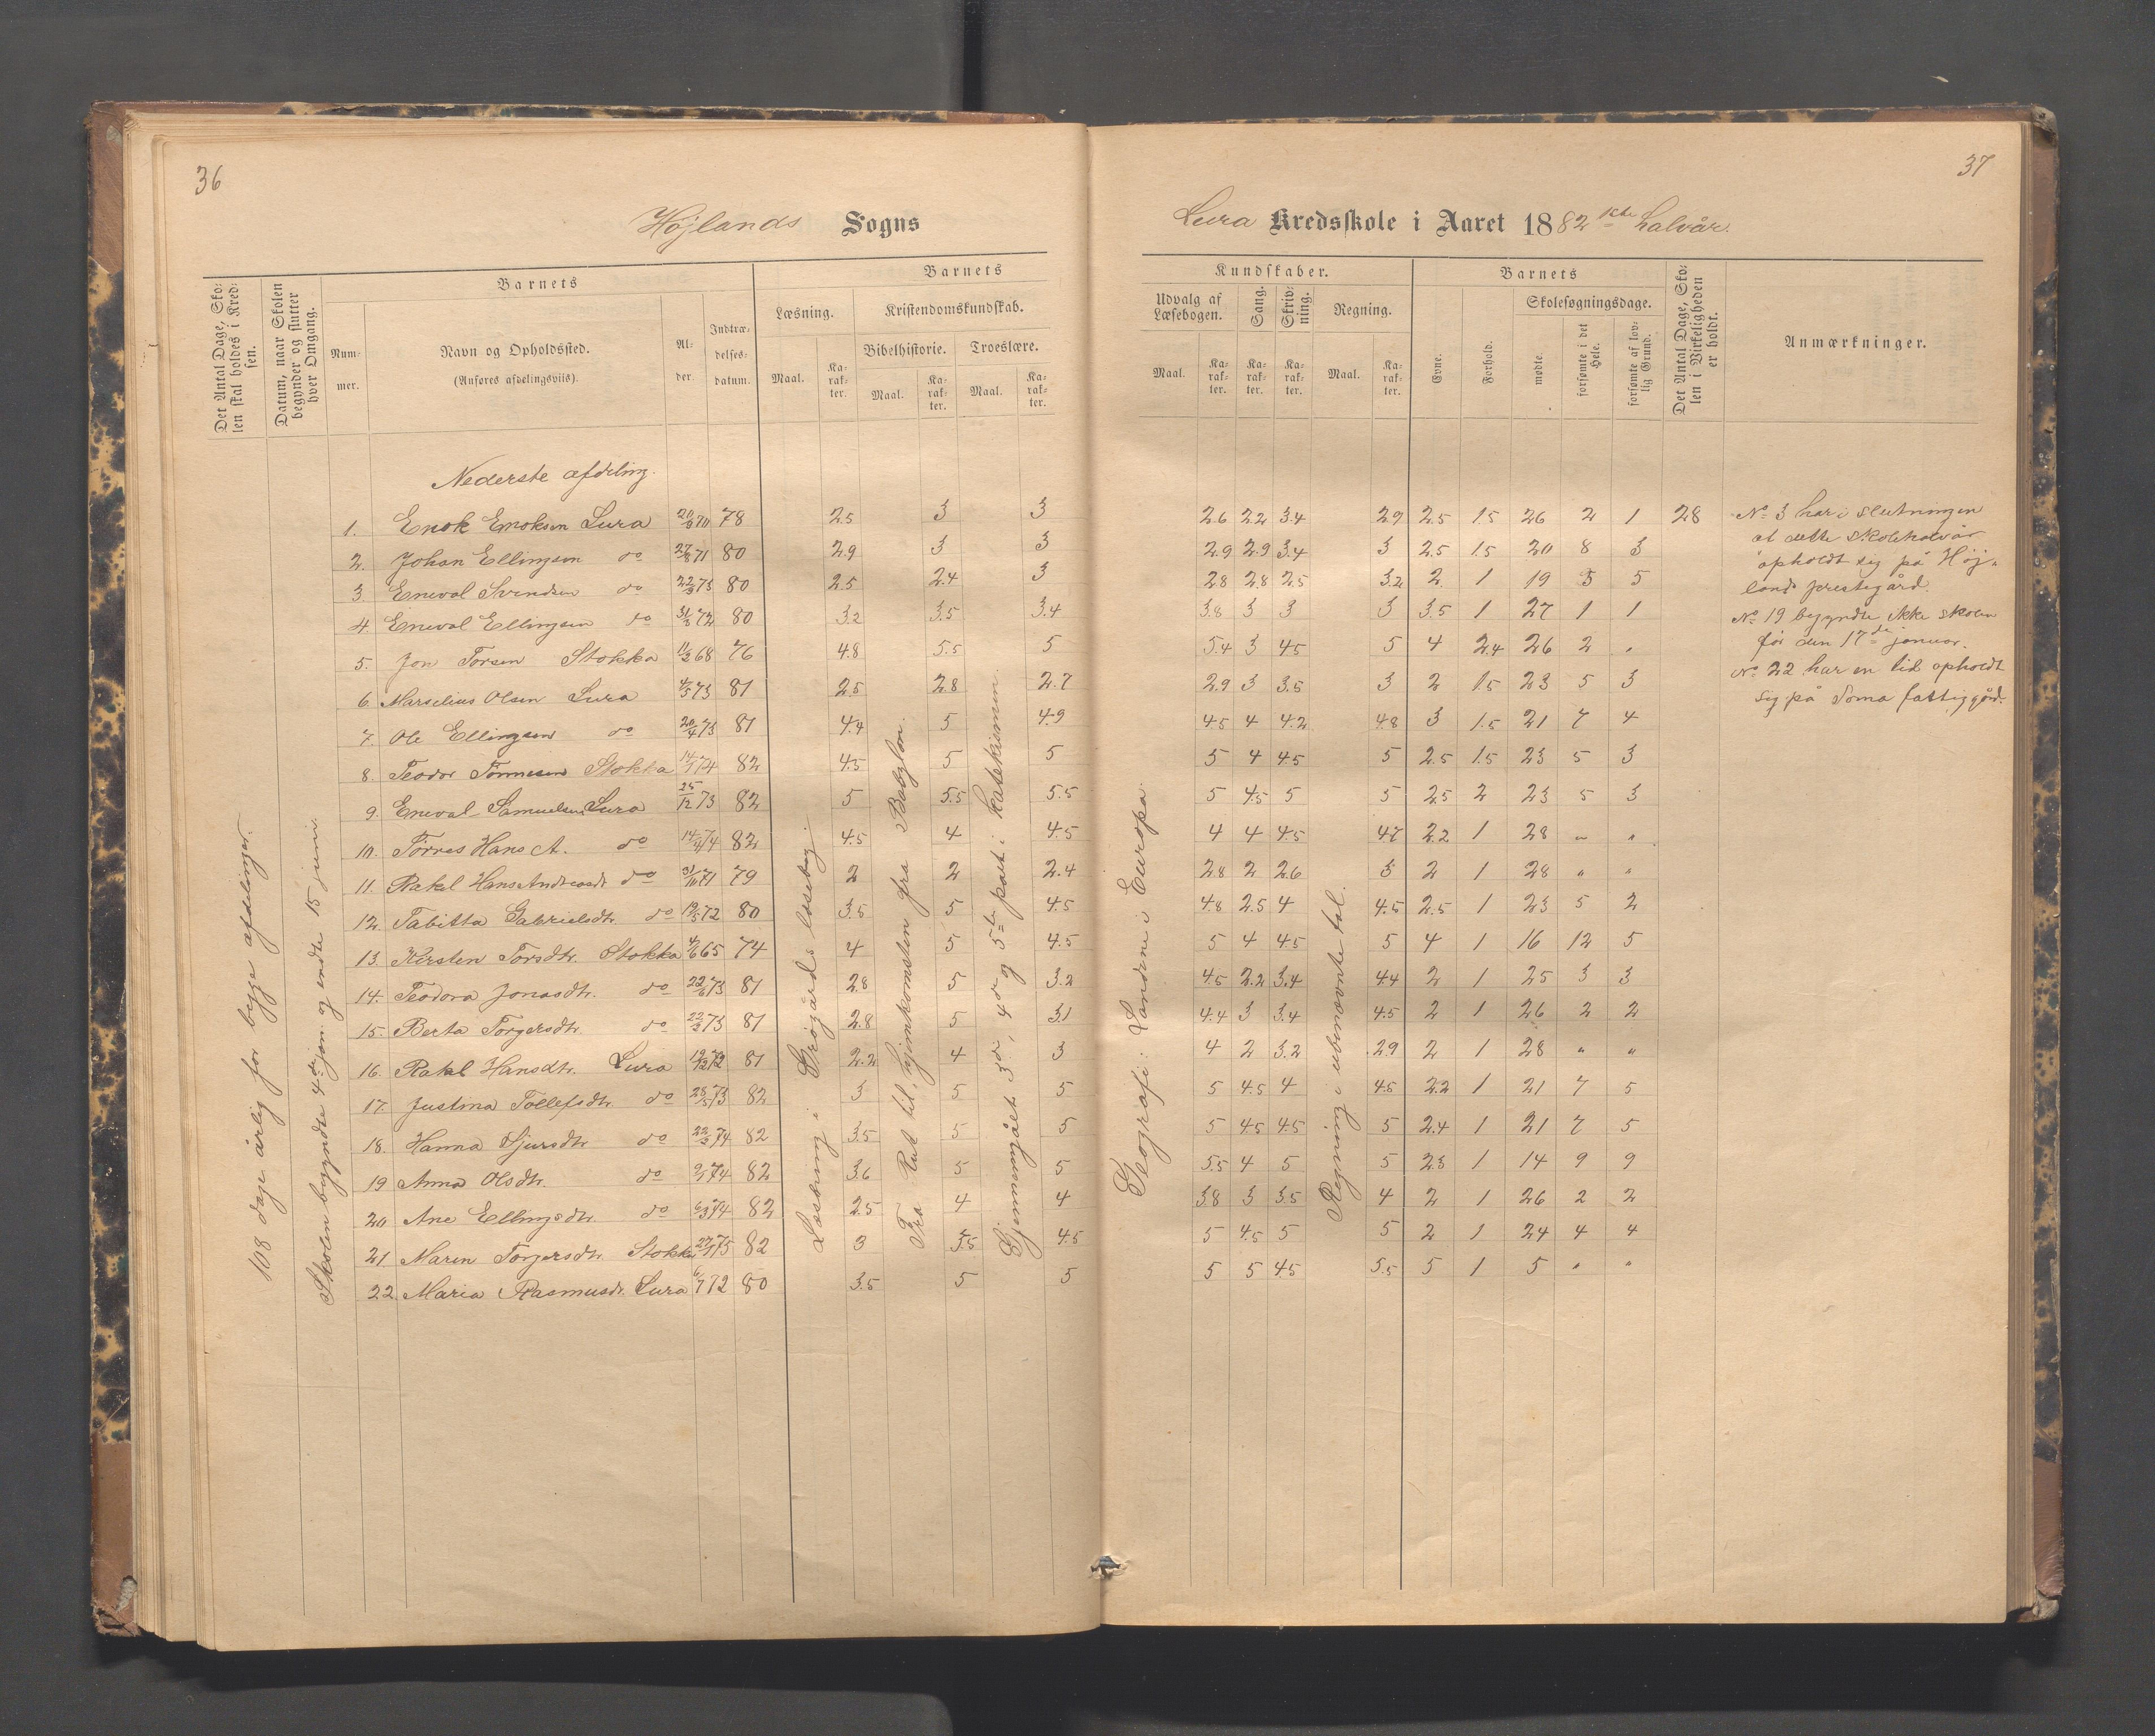 36
Højlands Sogns
Det Antal Dage, Skolen skal holdes i Kredsen.
Datum, naar Skolen begynder og slutter hver Omgang.
Barnets
Nummer.
Navn og Opholdssted.
(Anføres afdelingsviis).
Alder.
Indtrædelsesdatum.
Barnets
Læsning.
Kristendomskundskab.
Bibelhistorie.
Troeslære.
Maal.
Karakter.
Maal.
Karakter.
Maal.
Karakter.
108 dage årlig for begge afdelinger.
Skolen begyndte 4de jan. og endte 15 juni.
Læsning i Grøgårds læsebog.
Fra Rut til hjemkomsten fra Babylon.
Gjennemgået 3de, 4de og 5te part i Katekismen.
Nederste afdeling.
1. Enok Enoksen Lura 20/9 70 78 2.5 3 3
2. Johan Ellingsen do 27/8 71 80 2.9 3 3
3. Enevol Svendsen do 22/3 73 80 2.5 2.4 3
4. Enevol Ellingsen do 31/5 72 80 3.2 3.5 3.4
5. Jon Torsen Stokka 11/2 68 76 4.8 5.5 5
6. Marselius Olsen Lura 4/5 73 81 2.5 2.8 2.7
7. Ole Ellingsen do 20/4 73 81 4.4 5 4.9
8. Teodor Tønnesen Stokka 14/1 74 82 4.5 5 5
9. Enevol Samuelsen Lura 25/12 73 82 5 5.5 5.5
10. Tørres Hans A. do 14/4 74 82 4.5 4 4.5
11. Rakel Hans Andreasdt do 31/10 71 79 2 2 2.4
12. Tabitta Gabrielsdtr. do 19/5 72 80 3.5 5 4.5
13. Kirsten Torsdtr. Stokka 4/6 65 74 4 5 4.5
14. Teodora Jonasdtr. do 22/6 73 81 2.8 5 3.2
15. Berta Torgersdtr. do 22/3 73 81 2.8 5 3.1
16. Rakel Hansdtr. Lura 19/12 72 81 2.2 4 3
17. Justina Tollefsdtr. do 25/5 73 82 3 5 5
18. Hanna Sjursdtr do 22/3 74 82 3.5 5 5
19 Anna Olsdtr. do 2/1 74 82 3.6 5 5
20 Ane Ellingsdtr do 6/3 74 82 2.5 4 4
21 Maren Torgersdtr. Stokka 27/1 75 82 3 3.5 4.5
22. Maria Rasmusdt. Lura 6/7 72 80 3.5 5 5
37
Lura Kredsskole i Aaret 1882 1ste halvår.
Kundskaber.
Udvalg af Læsebogen.
Sang.
Skrivning.
Regning.
Maal.
Karakter.
Karakter.
Karakter.
Maal.
Karakter.
Barnets
Evne.
Forhold.
Skolesøgningsdage.
mødte.
forsømte i det Hele.
forsømte af lovlig Grund.
Det Antal Dage, Skolen i Virkeligheden er holdt.
Anmærkninger.
Geografi: Landene i Europa.
Regning i ubenævnte tal.
2.6 2.2 3.4 2.9 2.5 1.5 26 2 1 28
2.9 2.9 3.4 3 2.5 1.5 20 8 3
2.8 2.8 2.5 3.2 2. 1 19 5 5
3.8 3 3 3 3.5 1 27 1 1
5.4 3 4.5 5 4 2.4 26 2 "
2.9 3 3.5 3 2 1.5 23 5 3
4.5 4 4.2 4.8 3 1.5 21 7 4
5 4 4.5 5 2.5 1.5 23 5 3
5 4.5 5 5 2.5 2 23 5 3
4 4 4.5 4.7 2.2 1 28 " "
2.8 2 2.6 3 2 1 28 " "
4.8 2.5 4 4.5 2.5 1 23 5 2
5 4 4.5 5 4 1 16 12 5
4.5 2.2 3.4 4.4 2 1 25 3 3
4.4 3 3.4 4.5 2 1 26 2 2
4 2 3.2 2.9 2 1 28 " "
5 4.5 4 4.5 2.2 1 21 7 5
5 4.5 4.5 5 2.4 1 21 7 5
5.5 4 5 5 2.3 1 14 9 9
3.8 3 3.5 4 2 1 26 2 2
5 4.5 5 5 2 1 24 4 4
5 5 4.5 5.5 5 1 5 " "
No 3 har i slutningen
af dette skolehalvår
opholdt sig på Høj-
lands prestegård.
No 19 begyndte ikke skolen
før den 17de januar.
No 22 har en tid opholdt
sig på Soma fattiggård.